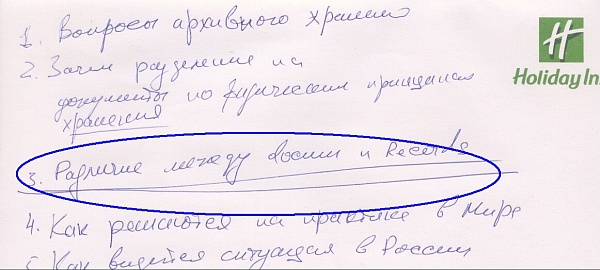 1. Вопросы архивного хранения
H
2. Зачем разделение на
Holiday In
документы по физическим принципам
хранения
3. Различие между и Records
4. Как решаются на практике в мире
5. Как видится ситуация в России